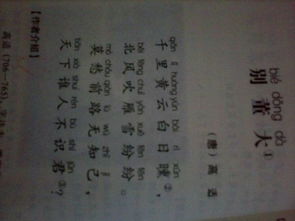 bié dǒng dà
别董大①
（唐）高适
qiān lǐ huáng yún bái rì xūn
千里黄云白日曛②，
běi fēng chuī yàn xuě fēn fēn
北风吹雁雪纷纷。
mò chóu qián lù wú zhī jǐ
莫愁前路无知己，
tiān xià shuí rén bù shí jūn
天下谁人不识君③？
【作者介绍】
高适（706—765），字